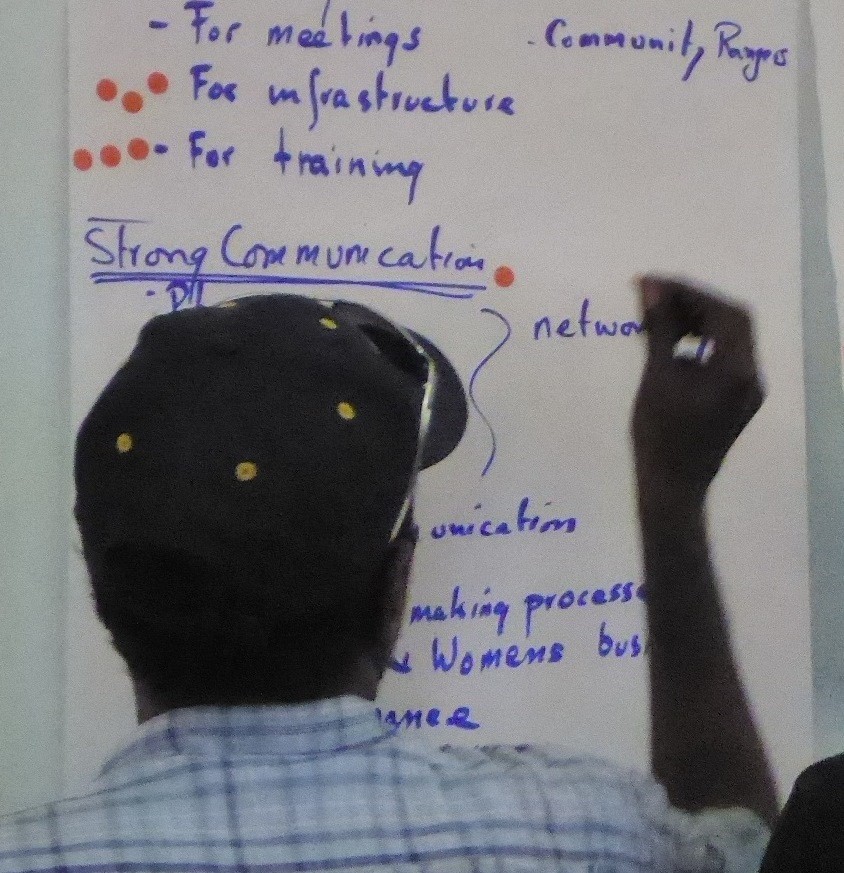 - For meetings
- Community Rangers
For infrastructure
- For training
Strong Communication
netwo
unication
making process
Womens bus